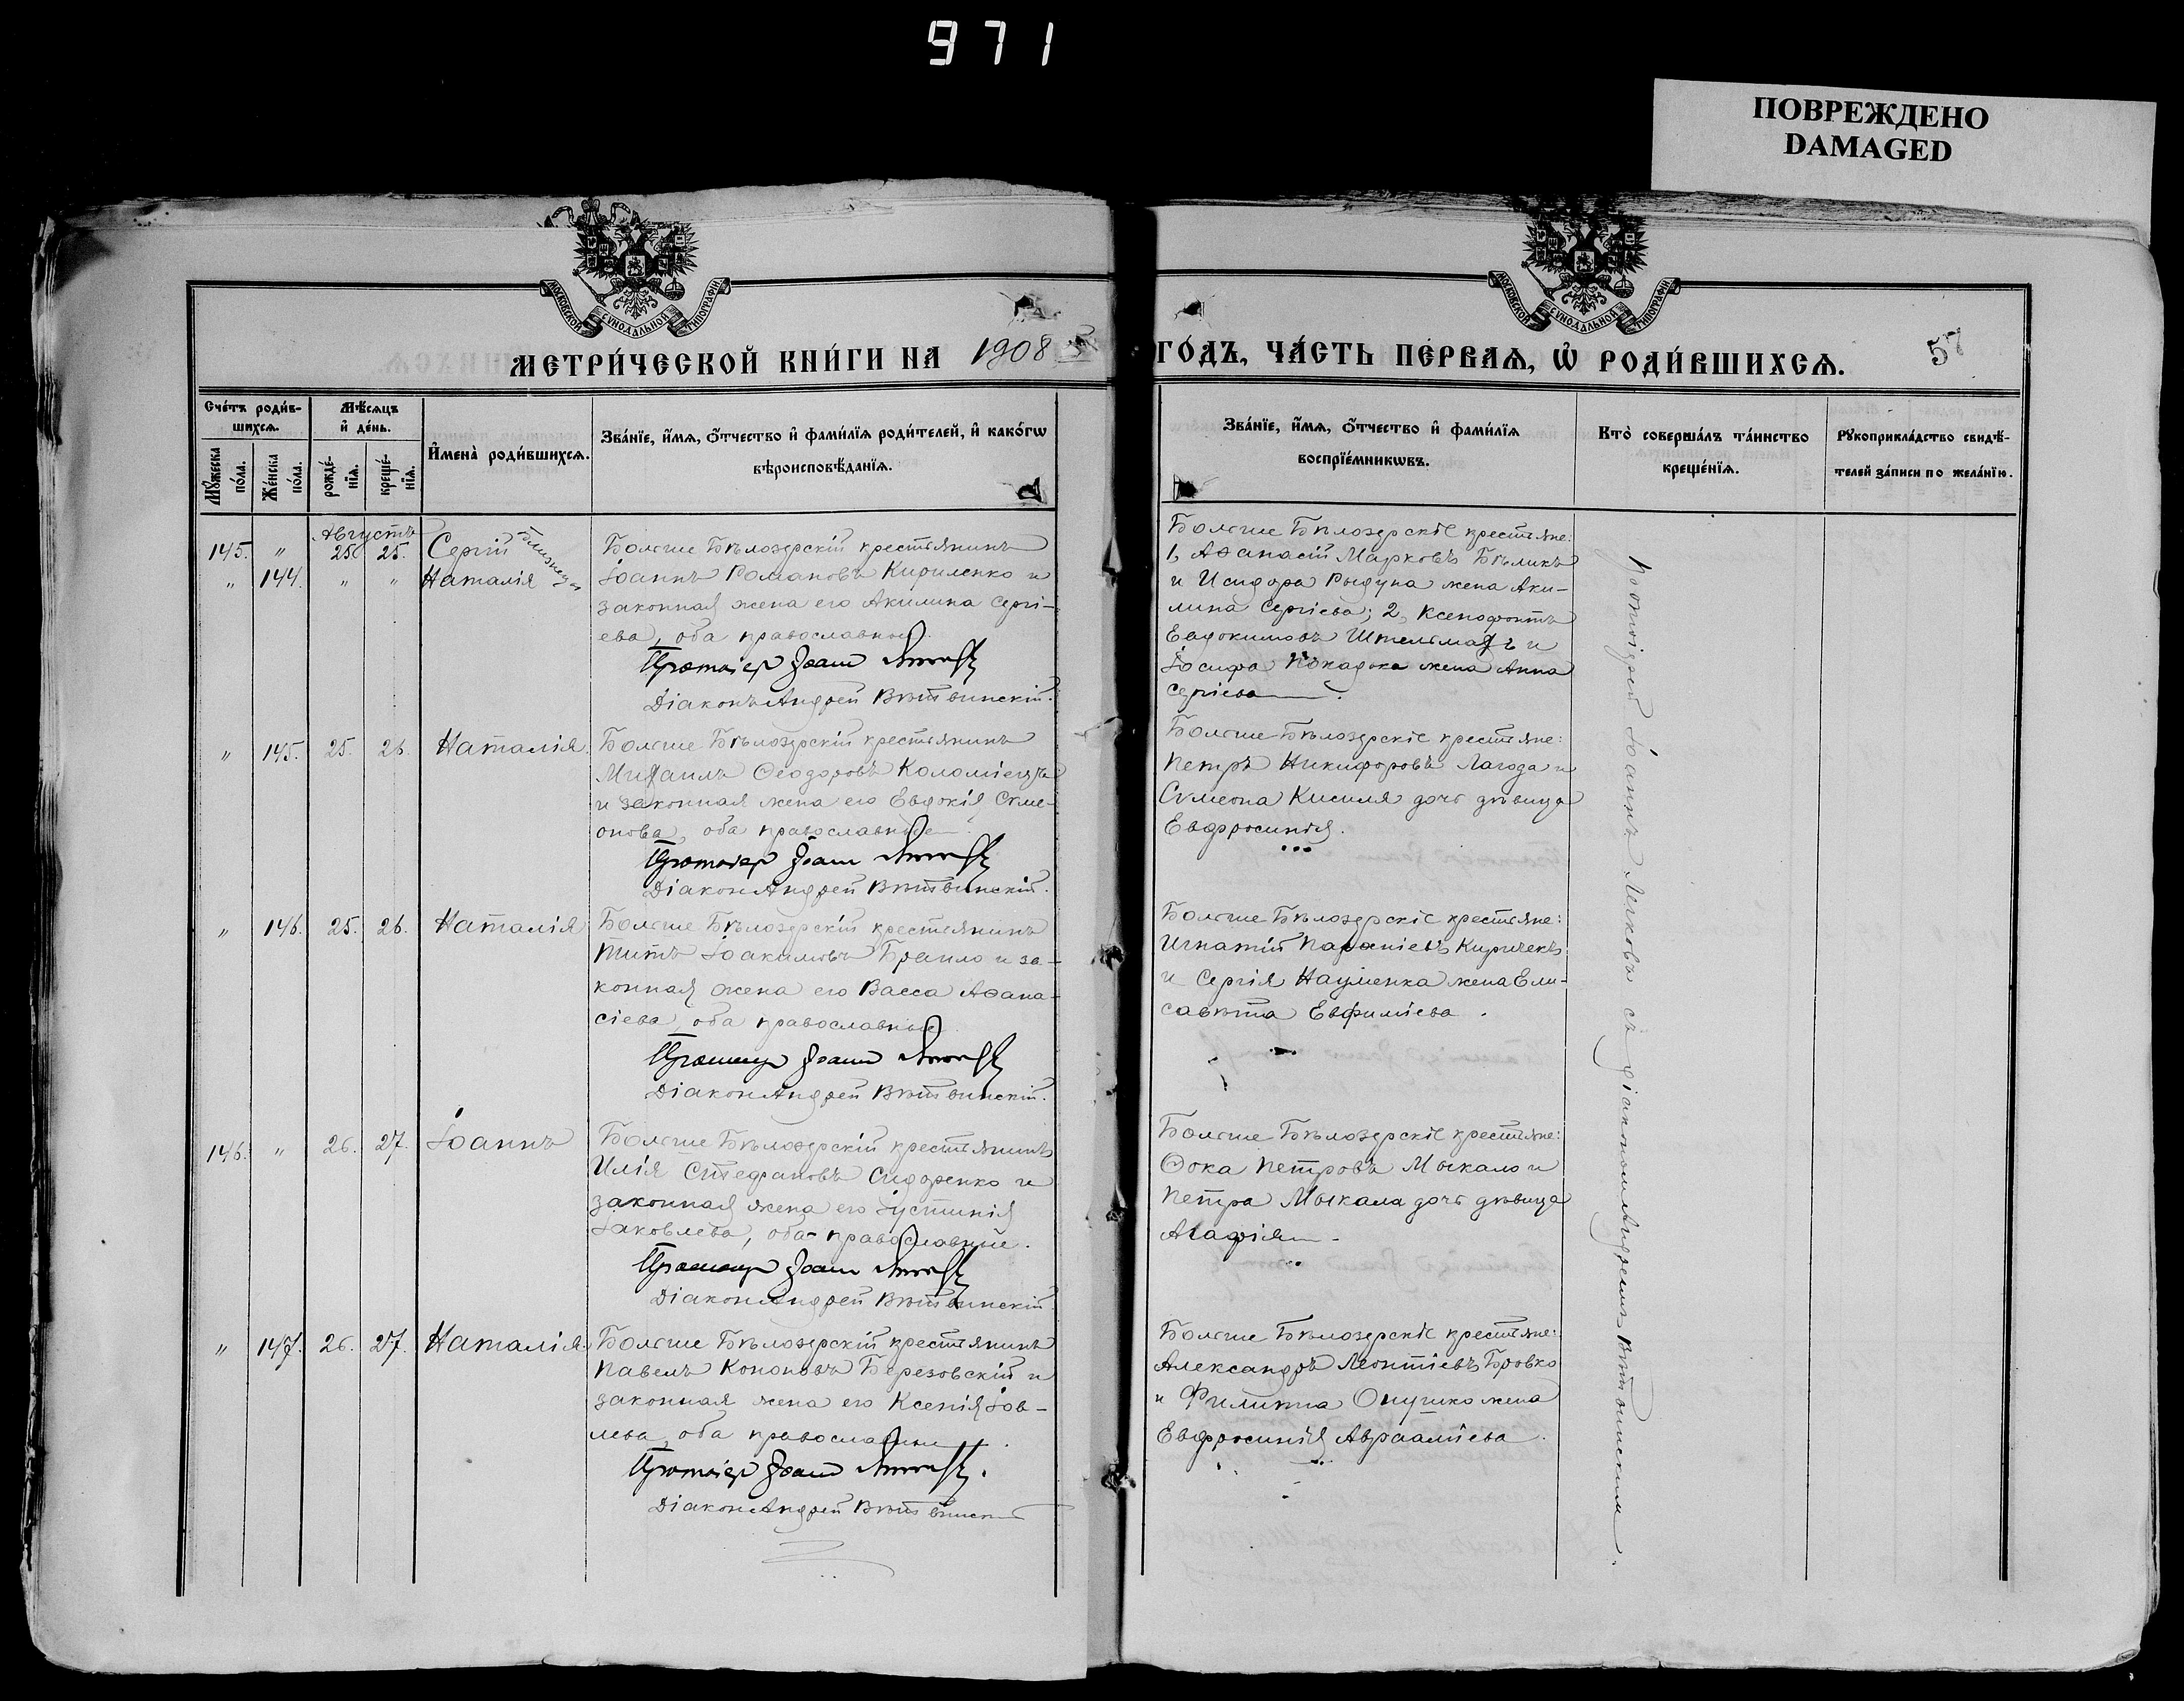 971
ПОВРЕЖДЕНО
DAMAGED
МОСКОВСКОЙ СѴНОДАЛЬНОЙ ТИПОГРАФІИ
МОСКОВСКОЙ СѴНОДАЛЬНОЙ ТИПОГРАФІИ
МЕТРИ́ЧЕСКОЙ КНИ́ГИ НА 1908
ГО́ДЪ, ЧА́СТЬ ПЕ́РВАѦ, Ѡ҆ РОДИ́ВШИХСѦ.
57
Сче́тъ роди́в-
шихсѧ.
Мꙋ́жеска по́ла.
Же́нска по́ла.
Мѣ́сѧцъ
и҆ де́нь.
рожде́-
нїѧ.
креще́-
нїѧ.
И҆мена̀ роди́вшихсѧ.
Зва́нїе, и҆́мѧ, ѻ҆́тчество и҆ фами́лїѧ роди́телей, и҆ како́гѡ
вѣроисповѣ́данїѧ.
Зва́нїе, и҆́мѧ, ѻ҆́тчество и҆ фами́лїѧ
воспрїе́мникѡвъ.
Кто̀ соверша́лъ та́инство
креще́нїѧ.
Рꙋкоприкла́дство свидѣ́-
телей за́писи по жела́нїю.
Августъ
145. " 25. 25. Сергій близнецы
" 144. " " Наталія
Больше Бѣлозерскій крестьянинъ
Іоаннъ Романовъ Кириленко и
законная жена его Акилина Сергі-
ева, оба православные.
Протоіер Іоанн
Діаконъ Андрей Вѣтвинскій.
Больше Бѣлозерскіе крестьяне:
1, Аѳанасій Марковъ Бѣликъ
и Исидора Рыдуна жена Аки-
лина Сергіева; 2, Ксенофонтъ
Евдокимовъ Штельмахъ и
Іосифа Покадока жена Анна
Сергіева.
" 145. 25. 26. Наталія.
Больше Бѣлозерскій крестьянинъ
Михаилъ Ѳеодоровъ Коломіецъ
и законная жена его Евдокія Сѵме-
онова, оба православные.
Протоіер Іоанн
Діакон Андрей Вѣтвинскій.
Больше-Бѣлозерскіе крестьяне:
Петръ Никифоровъ Лагода и
Сѵмеона Кисиля дочь дѣвица
Евфросинія.
" 146. 25. 26. Наталія
Больше Бѣлозерскій крестьянинъ
Титъ Іоакимовъ Браило и за-
конная жена его Васса Аѳана-
сіева, оба православные.
Протоіер Іоанн
Діакон Андрей Вѣтвинскій.
Больше Бѣлозерскіе крестьяне:
Игнатій Киричекъ
и Сергія Науменка жена Ели-
савета Евфиміева.
146. " 26. 27. Іоаннъ
Больше Бѣлозерскій крестьянинъ
Илія Стефановъ Сидоренко и
законная жена его Іустинія
Іаковлева, оба православные.
Протоіер Іоанн
Діакон Андрей Вѣтвинскій
Больше Бѣлозерскіе крестьяне:
Ѳока Петровъ Мыкало и
Петра Мыкала дочь дѣвица
Агафія.
" 147. 26. 27. Наталія.
Больше Бѣлозерскій крестьянинъ
Павелъ Кононовъ Березовскій и
законная жена его Ксенія Іов-
лева, оба православные.
Протоіер Іоанн
Діакон Андрей Вѣтвинскій
Больше Бѣлозерскіе крестьяне:
Александръ Леонтіевъ Бровко
и Филиппа Онушко жена
Евфросинія Авраамiева.
Протоіерей Іоаннъ съ діакономъ Андреемъ Вѣтвинскимъ.